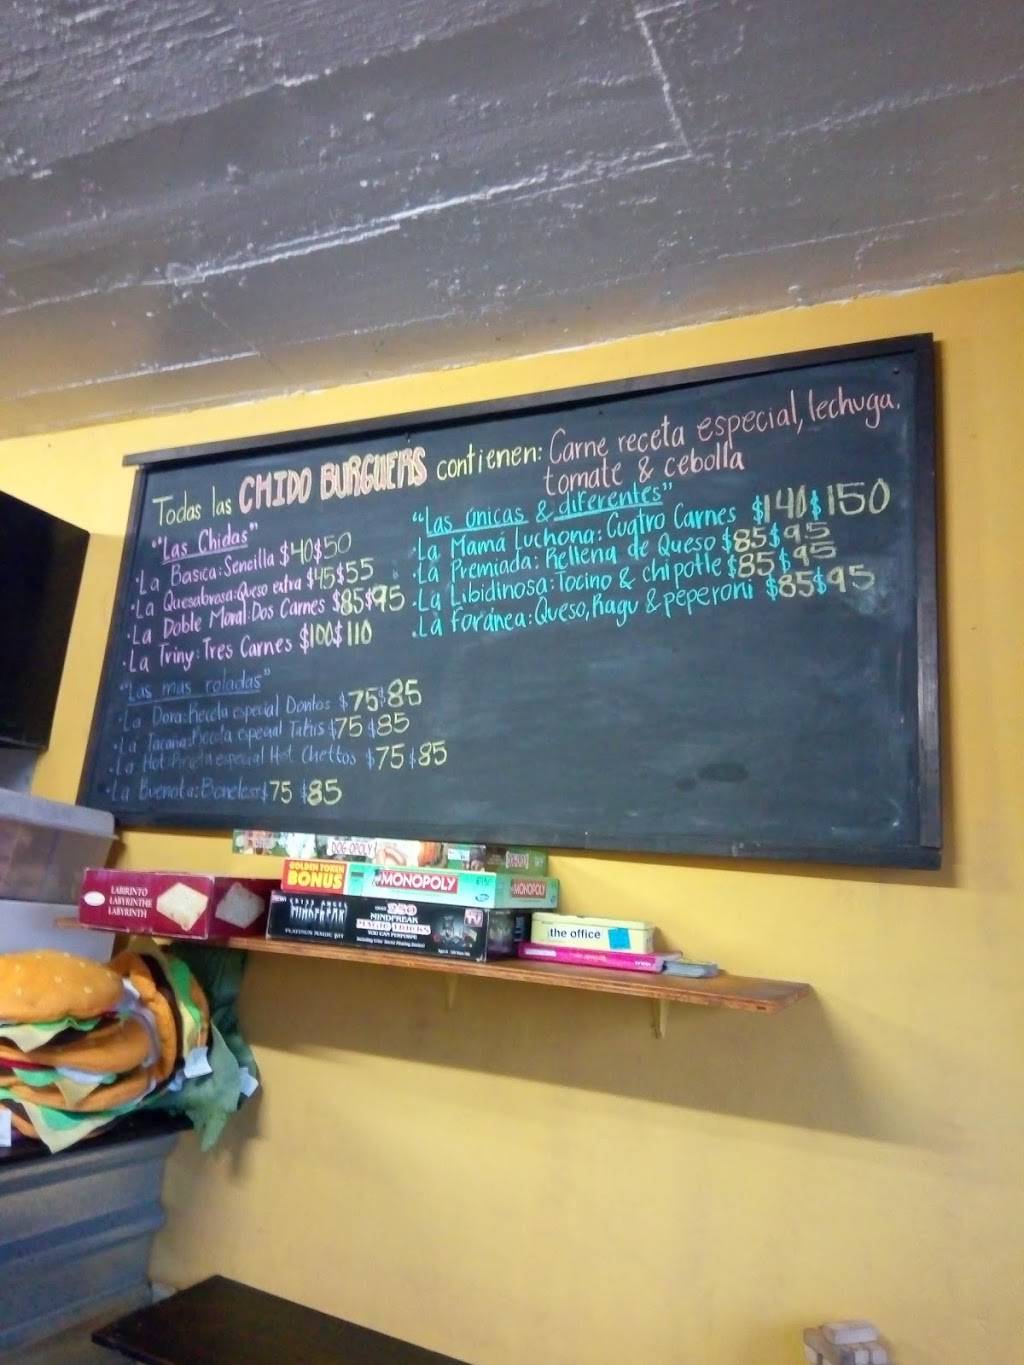 Todas las CHIDO BURGUERS contienen: Carne receta especial, lechuga,
tomate & cebolla
"Las Chidas"
·La Basica: Sencilla $40 $50
·La Quesabrosa: Queso extra $45 $55
·La Doble Moral: Dos Carnes $85 $95
·La Triny: Tres Carnes $100 $110
"Las mas roladas"
·La Dora: Receta especial Doritos $75 $85
·La Receta especial Takis $75 $85
·La Hot: Receta especial Hot Chettos $75 $85
·La Buenota: Boneless $75 $85
"Las únicas & diferentes"
·La Mamá Luchona: Cuatro Carnes $140 $150
·La Premiada: Rellena de Queso $85 $95
·La Libidinosa: Tocino & chipotle $85 $95
·La Foránea: Queso, Ragu & peperoni $85 $95
DOG-OPOLY
GOLDEN TOKEN
BONUS
MONOPOLY
MONOPOLY
LABIRINTO
LABYRINTHE
LABYRINTH
CRISS ANGEL
MINDFREAK
PLATINUM MAGIC KIT
OVER 250
MINDFREAK
MAGIC TRICKS
YOU CAN PERFORM!
the office